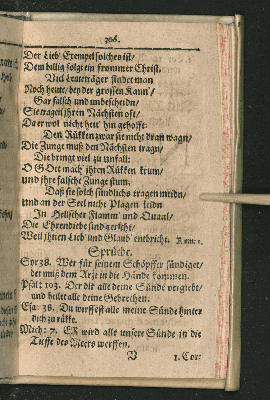 306.
Der Lieb Exempel solches ist/
Dem billig folgt ein frommer Christ.
Viel Leuteträger findet man
Noch heute/ bey der grossen
Gar falsch und unbescheidn/
Sie tragen ihren Nächsten oft/
Da er wol nicht hett hin gehofft.
Den Rükken zwar sie nicht dran wagn/
Die Zunge muß den Nächsten tragn/
Die bringt viel zu unfall:
O GOtt mach ihren Rükken krum/
und ihre falsche Zunge stum.
Daß sie solch sündlichs tragen meidn/
und an der Seel nicht Plagen leidn
In Hellscher Flamm und Quaal/
Die Ehrendiebe sind gericht/
Weil ihnen Lieb und Glaub entbricht.
Sprüche.
Syr38. Wer für seinem Schöpffer sündiget/
der muß dem Arzt in die Hände kommen.
Psal: 103. Der dir alle deine Sünde vergiebt/
und heilet alle deine Gebrechen.
Esa: 38. Du wirffest alle meine Sünde hinter
dich zu rükke.
Mich: 7. ER wird alle unsere Sünde in die
Tieffe des Meers werffen.
V 1. Cor: